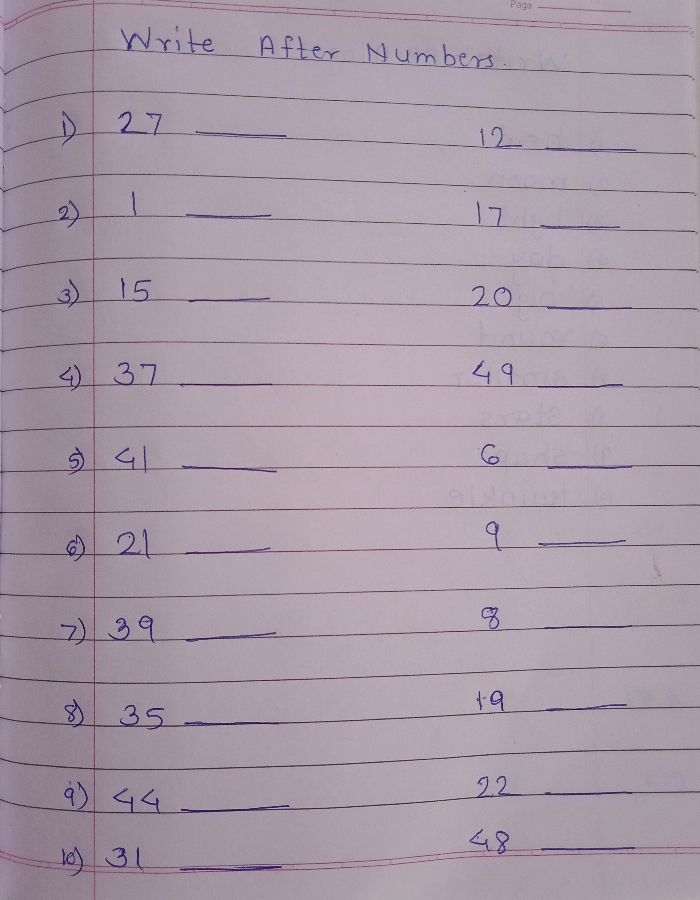 Page
Write After Numbers.
1) 27 ____ 12 ____
2) 1 ____ 17 ____
3) 15 ____ 20 ____
4) 37 ____ 49 ____
5) 41 ____ 6 ____
6) 21 ____ 9 ____
7) 39 ____ 8 ____
8) 35 ____ 19 ____
9) 44 ____ 22 ____
10) 31 ____ 48 ____